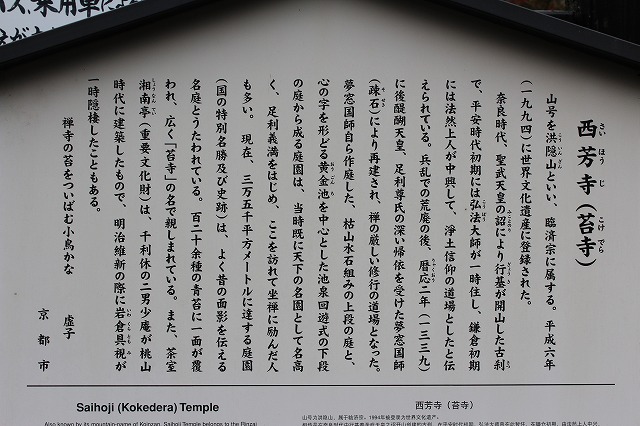 乗用車によ
西芳寺（苔寺）
さい ほう じ こけ でら
山号を洪隠山といい、臨済宗に属する。平成六年
（一九九四）に世界文化遺産に登録された。
奈良時代、聖武天皇の詔により行基が開山した古刹
で、平安時代初期には弘法大師が一時住し、鎌倉初期
には法然上人が中興して、浄土信仰の道場としたと伝
えられている。兵乱での荒廃の後、暦応二年（一三三九）
に後醍醐天皇、足利尊氏の深い帰依を受けた夢窓国師
（疎石）により再建され、禅の厳しい修行の道場となった。
夢窓国師自ら作庭した、枯山水石組みの上段の庭と、
心の字を形どる黄金池を中心とした池泉回遊式の下段
の庭から成る庭園は、当時既に天下の名園として名高
く、足利義満をはじめ、ここを訪れて坐禅に励んだ人
も多い。現在、三万五千平方メートルに達する庭園
（国の特別名勝及び史跡）は、よく昔の面影を伝える
名庭とうたわれている。百二十余種の青苔に一面が覆
われ、広く「苔寺」の名で親しまれている。また、茶室
湘南亭（重要文化財）は、千利休の二男少庵が桃山
時代に建築したもので、明治維新の際に岩倉具視が
一時隠棲したこともある。
禅寺の苔をついばむ小鳥かな 虚子
京都市
Saihoji (Kokedera) Temple
Also known by its mountain-name of Koinzan, Saihoji Temple belongs to the Rinzai
西芳寺（苔寺）
山号为洪隐山，属于临济宗。1994年被登录为世界文化遗产。